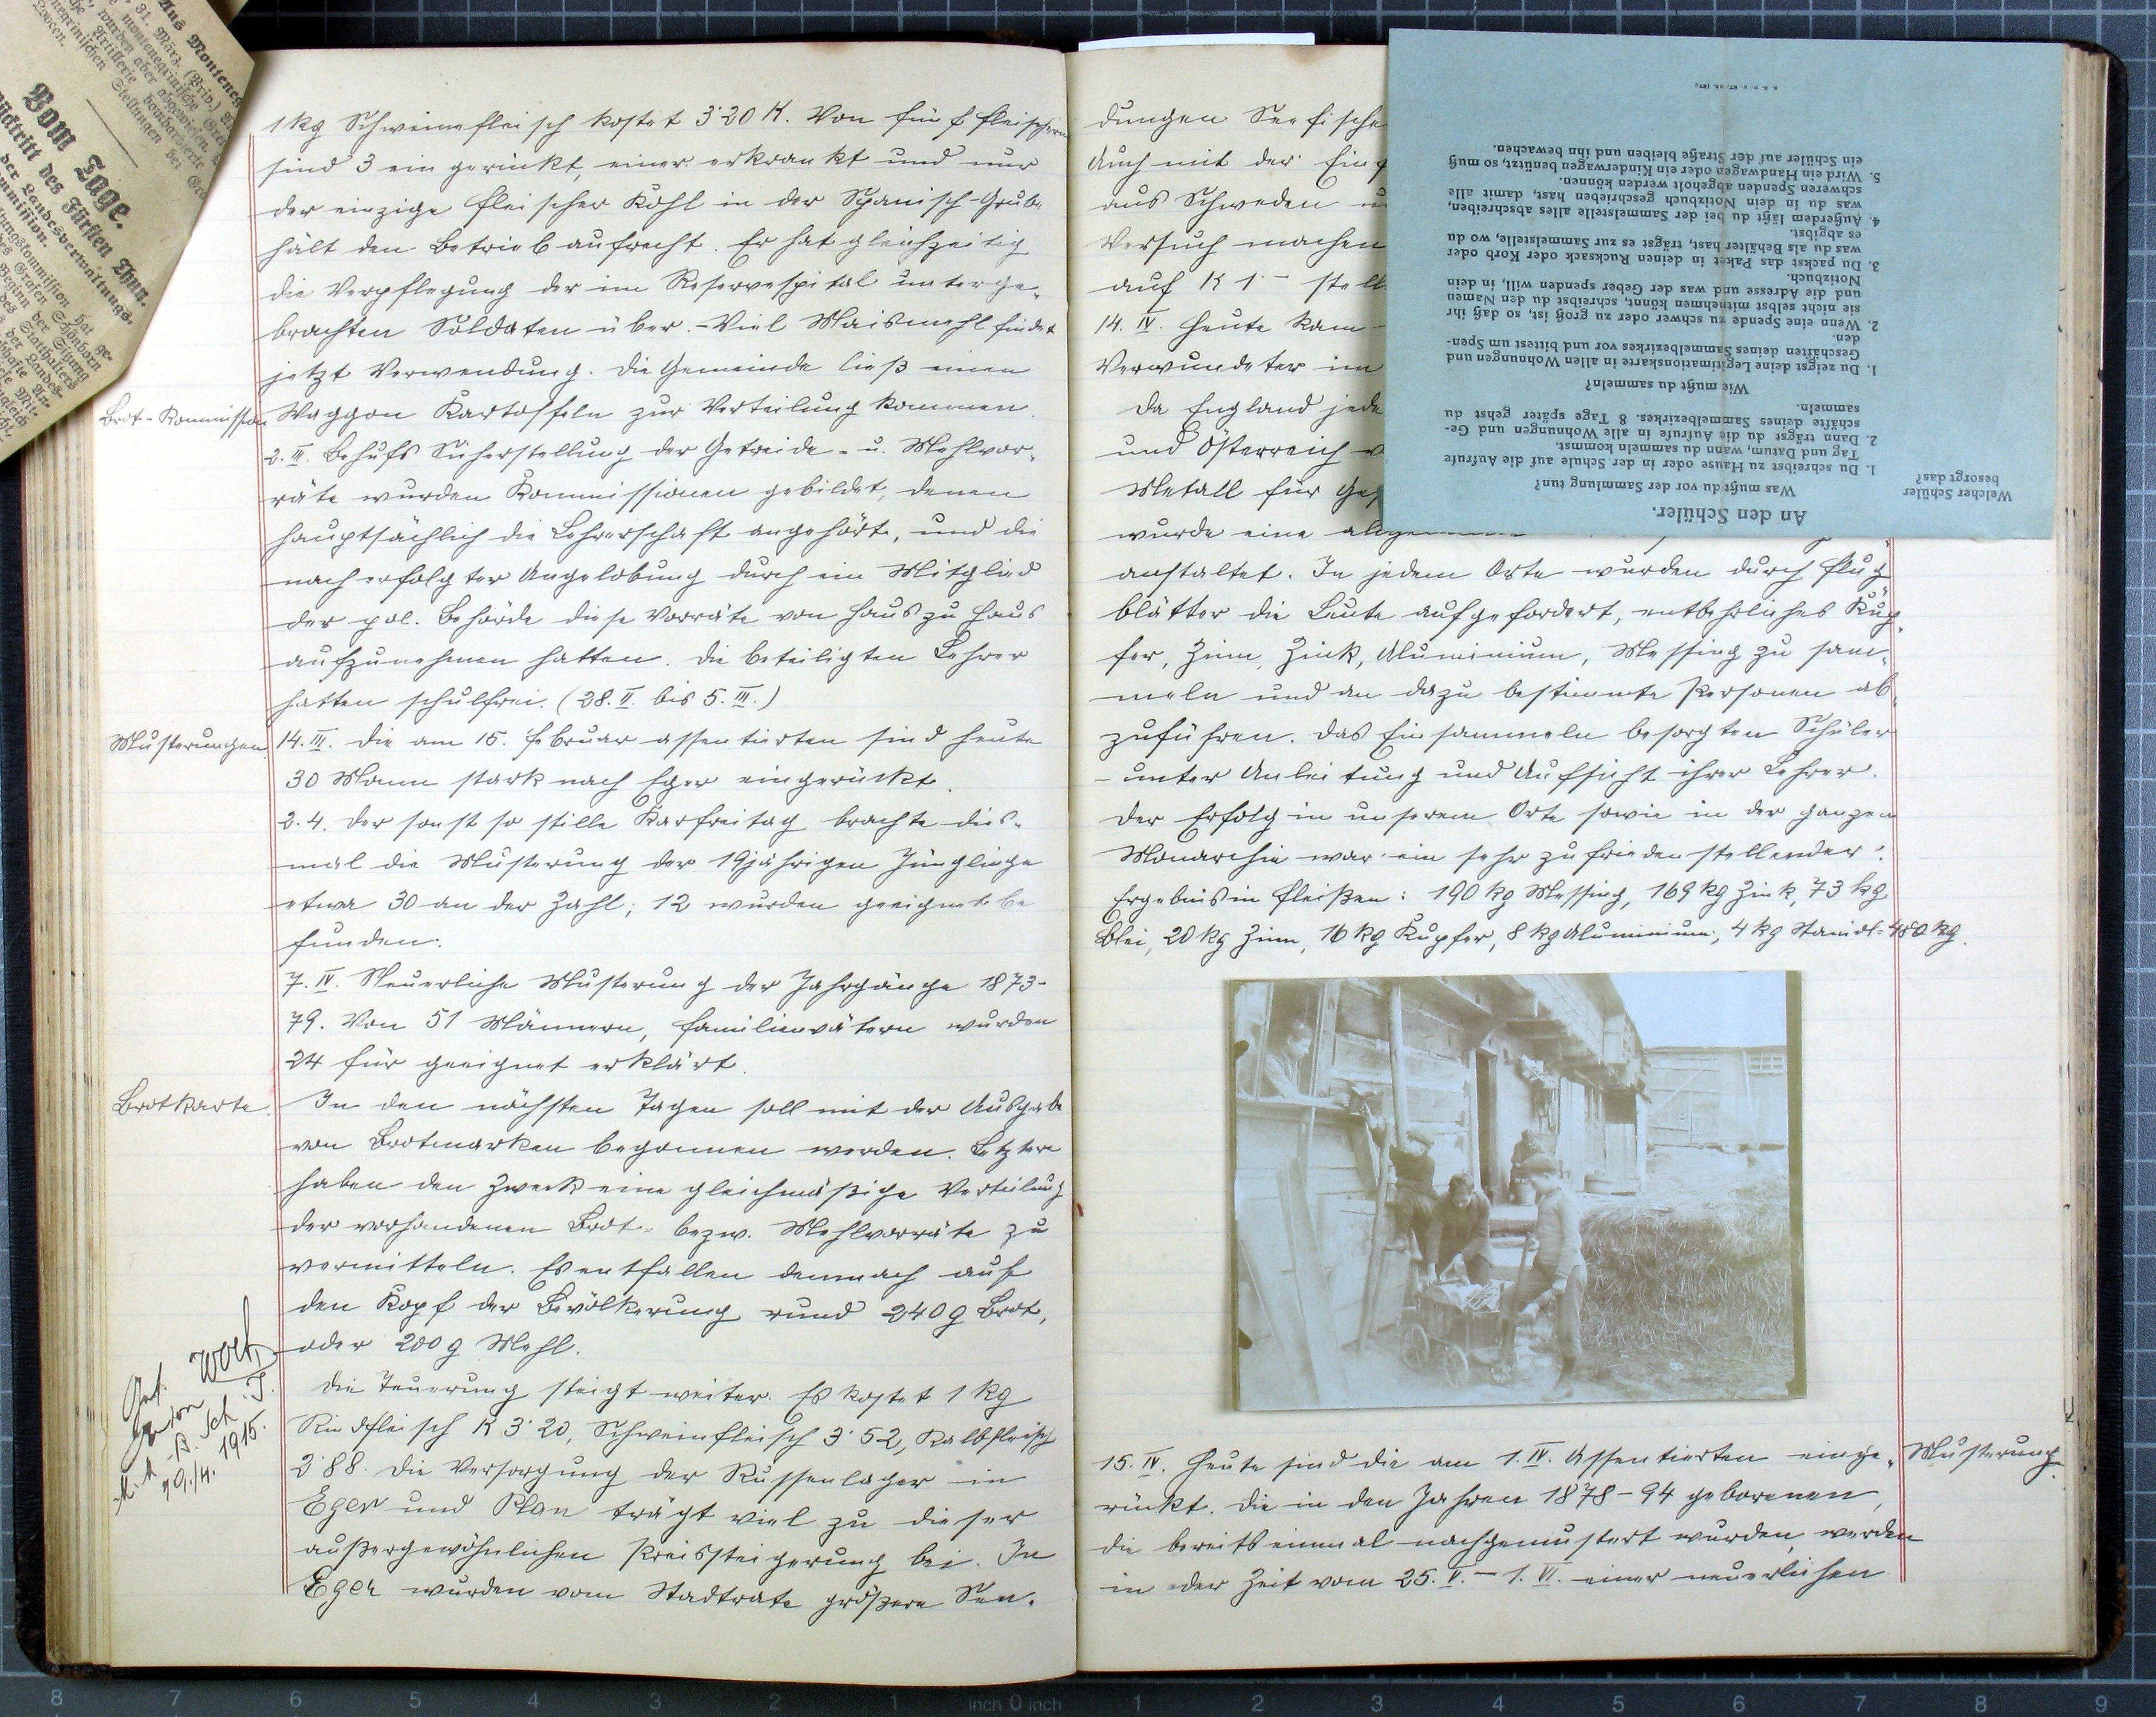 Aus Monteneg
31. März. (Priv.)
montenegrinische
wurden aber abgewiesen.
Artillerie bombardierte
negrinischen Stellungen bei
Lovcen.
Vom Tage.
ücktritt des Fürsten Thun.
der Landesverwaltungs-
mmission.
ungskommission hat ge-
des Grafen Schönborn
Beginn der Sitzung
des Statthalters
der Landes-
1 kg Schweinefleisch kostet 3·20 K. Von fünf Fleischern
sind 3 eingerückt, einer erkrankt und nur
der einzige Fleischer Kohl in der Spanisch-Grube
hält den Betrieb aufrecht. Er hat gleichzeitig
die Verpflegung der im Reservespital unterge-
brachten Soldaten über. - Viel Maismehl findet
jetzt Verwendung. Die Gemeinde ließ einen
Brot-Kommission
Waggon Kartoffeln zur Verteilung kommen.
2. III. Behufs Sicherstellung der Getreide- u. Mehlvor-
räte wurden Kommissionen gebildet, denen
hauptsächlich die Lehrerschaft angehörte, und die
nach erfolgter Angelobung durch ein Mitglied
der pol. Behörde diese Vorräte von Haus zu Haus
aufzunehmen hatten. Die beteiligten Lehrer
hatten schulfrei. (28. II. bis 5. III.)
Musterungen
14. III. Die am 15. Februar assentierten sind heute
30 Mann stark nach Eger eingerückt.
2. 4. Der sonst so stille Karfreitag brachte dies-
mal die Musterung der 19jährigen Jünglinge
etwa 30 an der Zahl; 12 wurden geeignet be
funden.
7. IV. Neuerliche Musterung der Jahrgänge 1873-
79. Von 51 Männern, Familienvätern wurden
24 für geeignet erklärt.
Brotkarte.
In den nächsten Tagen soll mit der Ausgabe
von Brotmarken begonnen werden. Letztere
haben den Zweck eine gleichmäßige Verteilung
der vorhandenen Brot- bezw. Mehlvorräte zu
vermitteln. Es entfallen demnach auf
den Kopf der Bevölkerung rund 240 g Brot,
oder 200 g Mehl.
Die Teuerung steigt weiter. Es kostet 1 kg
Rindfleisch K 3·20, Schweinfleisch 3·52, Kalbfleisch
2·88. Die Versorgung der Russenlager in
Eger und Plan trägt viel zu dieser
außergewöhnlichen Preissteigerung bei. In
Eger wurden vom Stadtrate größere Sen-
Ges. Wolf
1915.
dungen Seefische
Auch mit der Einf
aus Schweden u
Versuch machen
auf K 1·- stell
14. IV. Heute kam
Verwundeter im
Da England jede
und Österreich v
Metall für Ges
wurde eine allgemeine
anstaltet. In jedem Orte wurden durch Flug
blätter die Leute aufgefordert, entbehrliches Kup-
fer, Zinn, Zink, Aluminium, Messing zu sam-
meln und an dazu bestimmte Personen ab-
zuführen. Das Einsammeln besorgten Schüler
unter Anleitung und Aufsicht ihrer Lehrer.
Der Erfolg in unserem Orte sowie in der ganzen
Monarchie war ein sehr zufriedenstellender!
Ergebnis in Fleißen: 190 kg Messing, 169 kg Zink, 73 kg
Blei, 20 kg Zinn, 16 kg Kupfer, 8 kg Aluminium, 4 kg Staniol = 480 kg.
15. IV. Heute sind die am 1. IV. Assentierten einge-
Musterung.
rückt. Die in den Jahren 1878-94 geborenen,
die bereits einmal nachgemustert wurden, werden
in der Zeit vom 25. V. - 1. VI. einer neuerlichen
An den Schüler.
Welcher Schüler
besorgt das?
Was mußt du vor der Sammlung tun?
1. Du schreibst zu Hause oder in der Schule auf die Aufrufe
Tag und Datum, wann du sammeln kommst.
2. Dann trägst du die Aufrufe in alle Wohnungen und Ge-
schäfte deines Sammelbezirkes. 8 Tage später gehst du
sammeln.
Wie mußt du sammeln?
1. Du zeigst deine Legitimationskarte in allen Wohnungen und
Geschäften deines Sammelbezirkes vor und bittest um Spen-
den.
2. Wenn eine Spende zu schwer oder zu groß ist, so daß ihr
sie nicht selbst mitnehmen könnt, schreibst du den Namen
und die Adresse und was der Geber spenden will, in dein
Notizbuch.
3. Du packst das Paket in deinen Rucksack oder Korb oder
was du als Behälter hast, trägst es zur Sammelstelle, wo du
es abgibst.
4. Außerdem läßt du bei der Sammelstelle alles abschreiben,
was du in dein Notizbuch geschrieben hast, damit alle
schweren Spenden abgeholt werden können.
5. Wird ein Handwagen oder ein Kinderwagen benützt, so muß
ein Schüler auf der Straße bleiben und ihn bewachen.
8 7 6 5 4 3 2 1 inch 0 inch 1 2 3 4 5 6 7 8 9